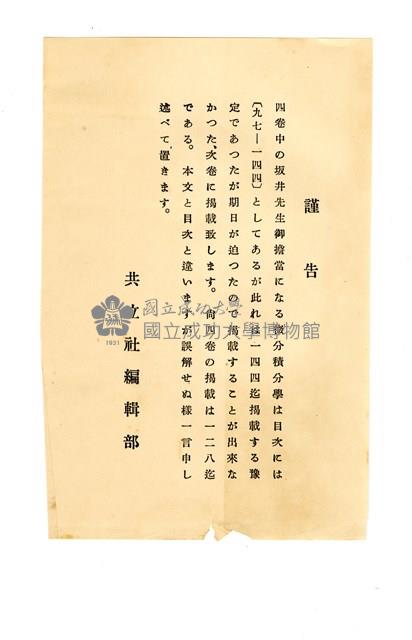 謹告
四卷中の坂井先生御擔當になる微分積分學は目次には
〔九七―一四四〕としてあるが此れは一四四迄揭載する豫
定であつたが期日が迫つたので揭載することが出來な
かつた、次卷に揭載致します。尙四卷の揭載は一二八迄
である。本文と目次と違いますが誤解せぬ樣一言申し
述べて置きます。
共立社編輯部
國立成功大學
國立成功大學博物館
1931